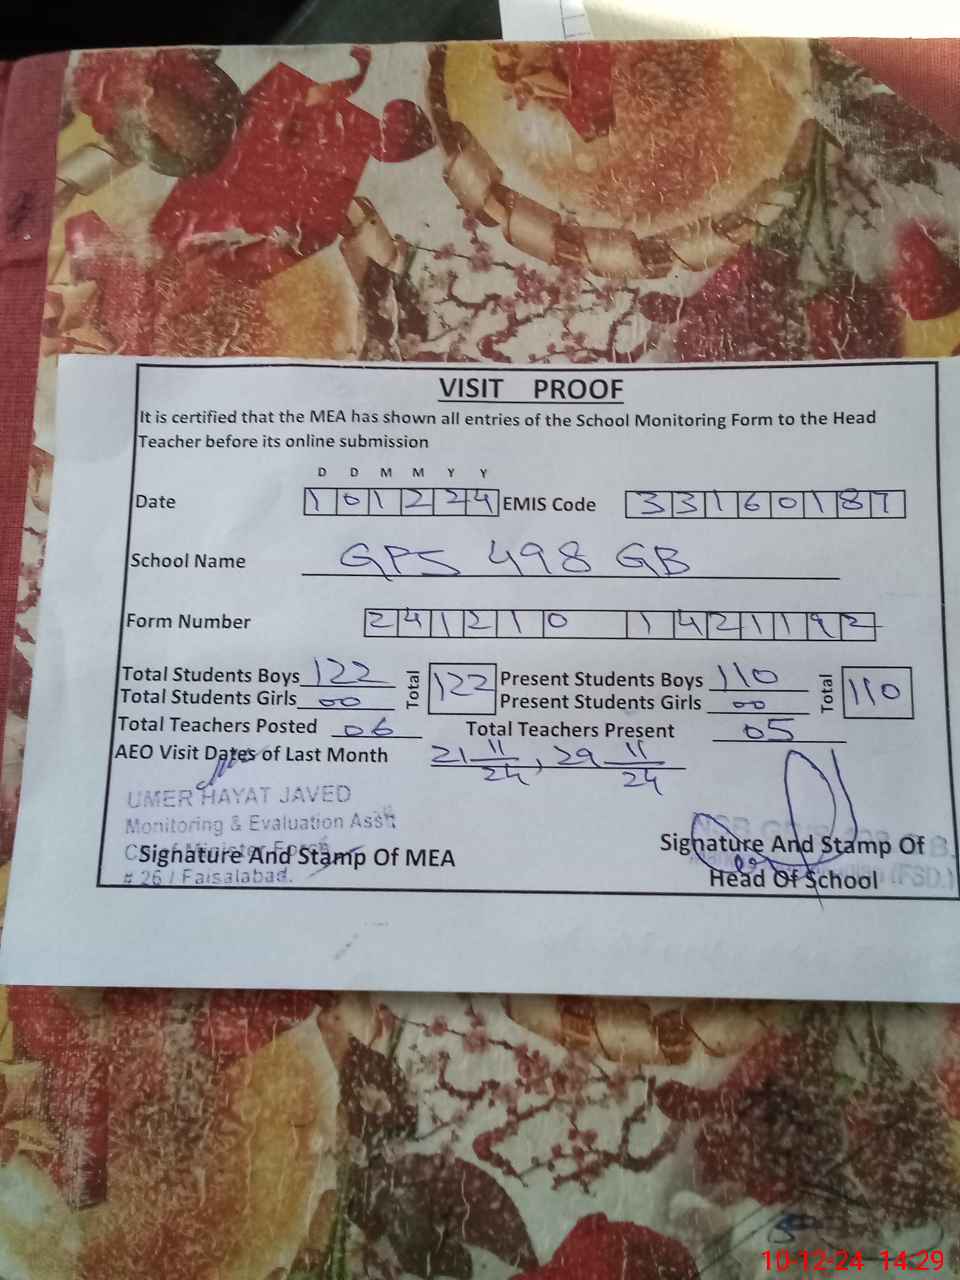 VISIT PROOF
It is certified that the MEA has shown all entries of the School Monitoring Form to the Head
Teacher before its online submission
D D M M Y Y
Date 1 0 1 2 2 4 EMIS Code 3 3 1 6 0 1 8 7
School Name GPS 498 GB
Form Number 2 4 1 2 1 0 1 4 2 1 1 9 2
Total Students Boys 122 Total 122 Present Students Boys 110 Total 110
Total Students Girls 00 Present Students Girls 00
Total Teachers Posted 06 Total Teachers Present 05
AEO Visit Dates of Last Month 21 11/24, 29 11/24
UMER HAYAT JAVED
Monitoring & Evaluation Asstt
Chief Minister Force
Signature And Stamp Of MEA
# 26 / Faisalabad.
Signature And Stamp Of
Head Of School
(FSD.)
10-12-24 14:29